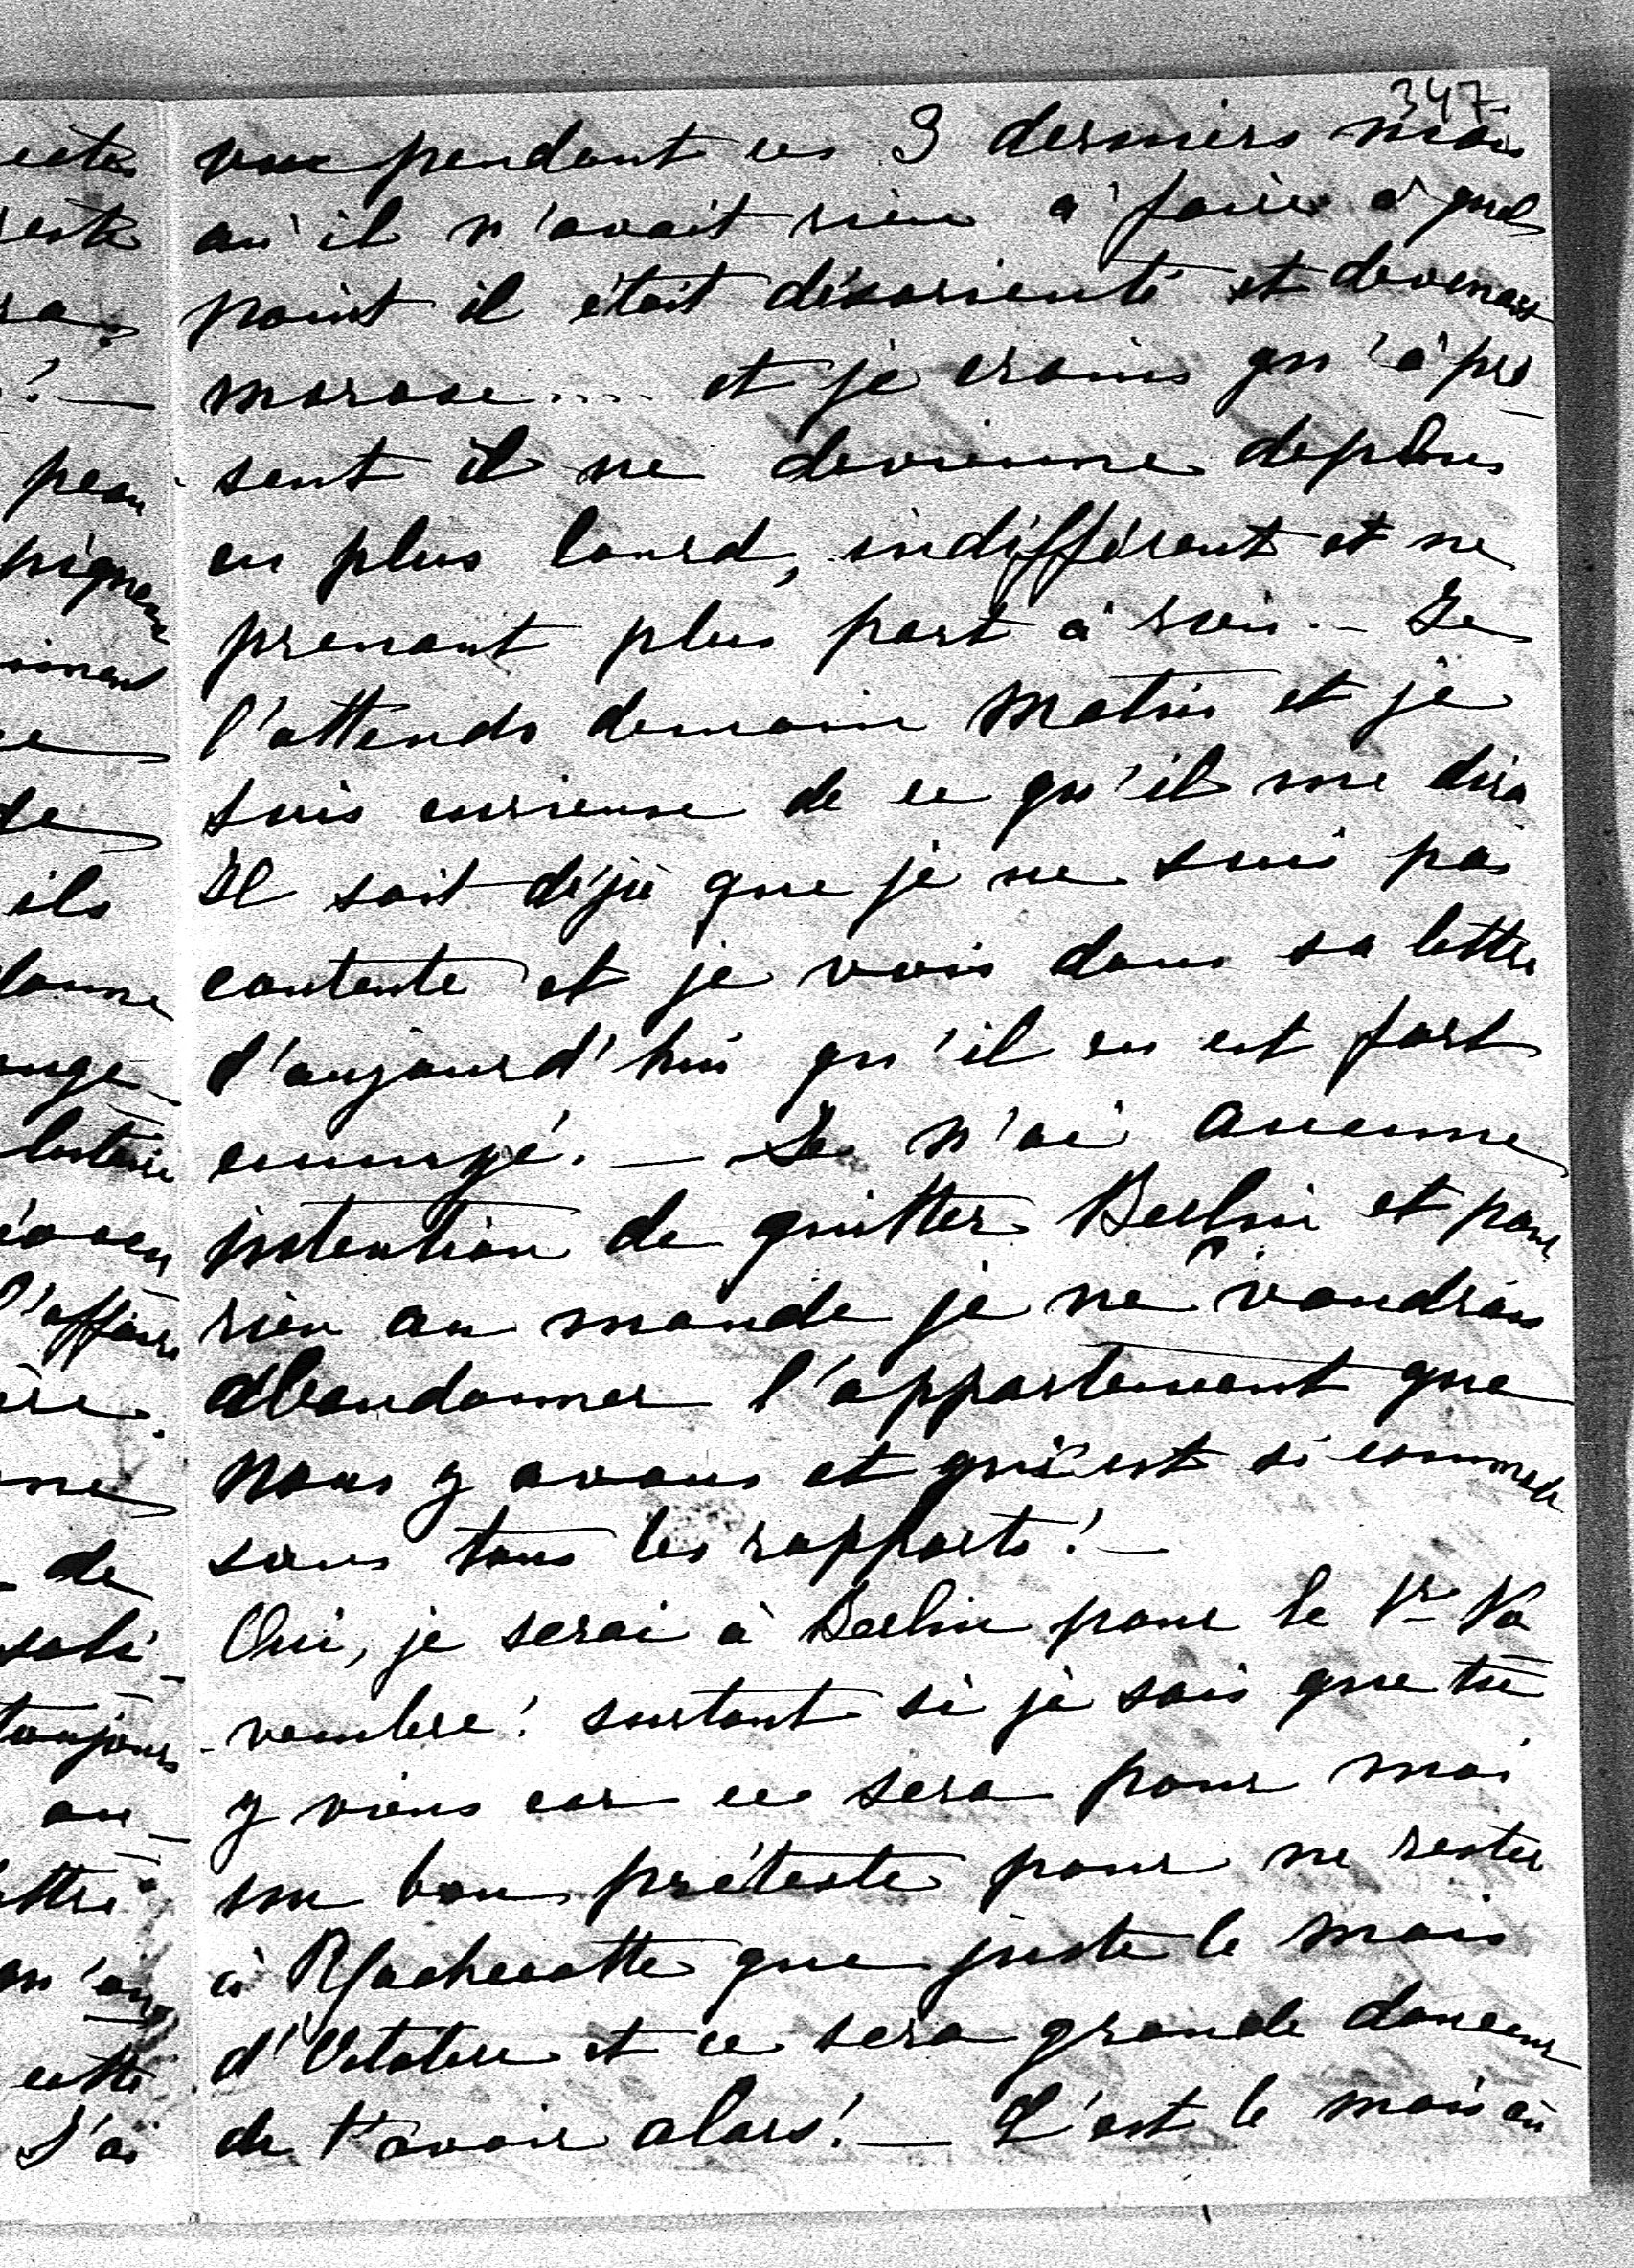 347.
vu pendant ces 3 derniers mois
où il n'avait rien à faire à quel
point il était désorienté et devenait
morose.... et je crains qu'à pré-
sent il ne devienne de plus
en plus lourd, indifférent et ne
prenant plus part à rien. — Je
l'attends demain matin et je
suis curieuse de ce qu'il me dira
Il sait déjà que je ne suis pas
contente et je vois dans sa lettre
d'aujourd'hui qu'il en est fort
ennuyé. — Je n'ai aucune
intention de quitter Berlin et pour
rien au monde je ne voudrais
abandonner l'appartement que
nous y avons et qui est si commode
sous tous les rapports! —
Oui, je serai à Berlin pour le 1r No
vembre! surtout si je sais que tu
y viens car ce sera pour moi
un bon prétexte pour ne rester
à que juste le mois
d'Octobre et ce sera grande douceur
de t'avoir alors! — C'est le mois où